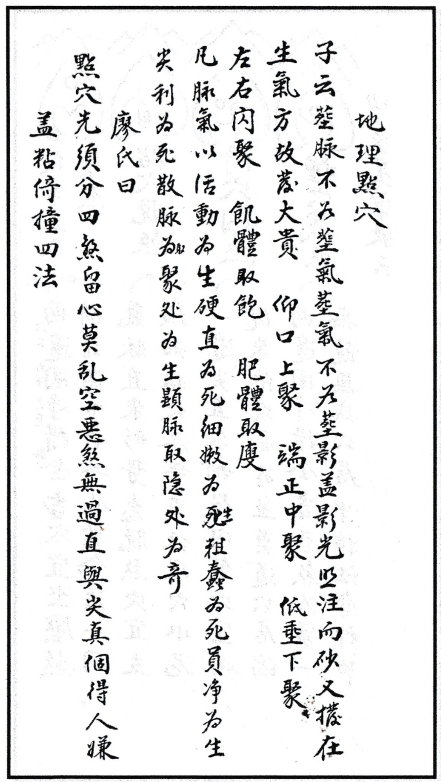 地理點穴
子云塟脉不若塟氣塟氣不若塟影盖影光所注而砂又在
生氣方故發大貴 仰口上聚 端正中聚 低垂下聚
左右闪聚 飢體取飽 肥體取廋
凡脉氣以活動為生硬直為死细嫩為死生粗蠢為死員净為生
尖利為死散脉為取聚处為生顕脉取隐处為奇
廖氏曰
點穴先須分四煞留心莫乱空惡煞無過直與尖真個得人嫌
盖粘倚撞四法